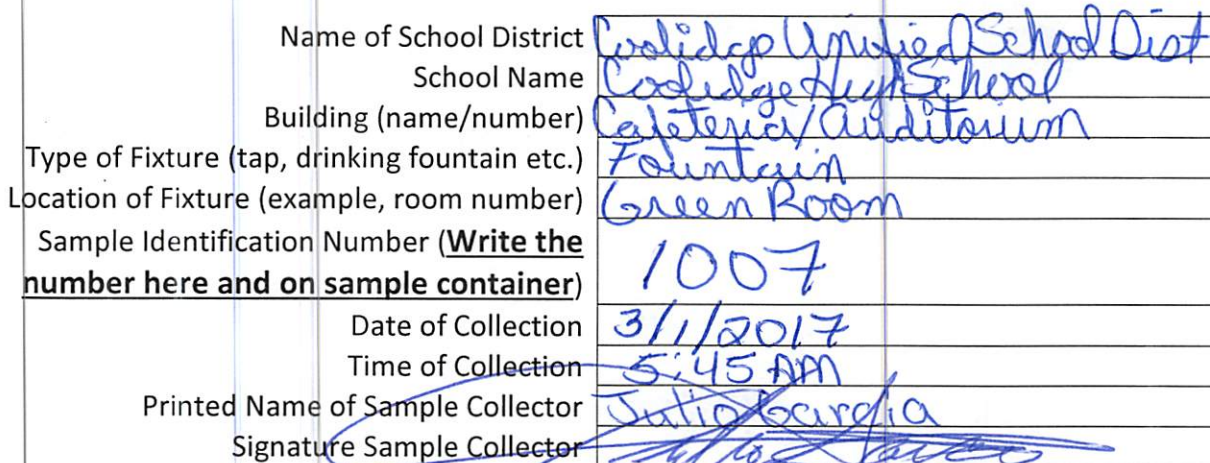 Name of School District Coolidge Unified School Dist
School Name Coolidge High School
Building (name/number) Cafeteria/Auditorium
Type of Fixture (tap, drinking fountain etc.) Fountain
Location of Fixture (example, room number) Green Room
Sample Identification Number (Write the
number here and on sample container) 1007
Date of Collection 3/1/2017
Time of Collection 5:45 AM
Printed Name of Sample Collector Julio Garcia
Signature Sample Collector